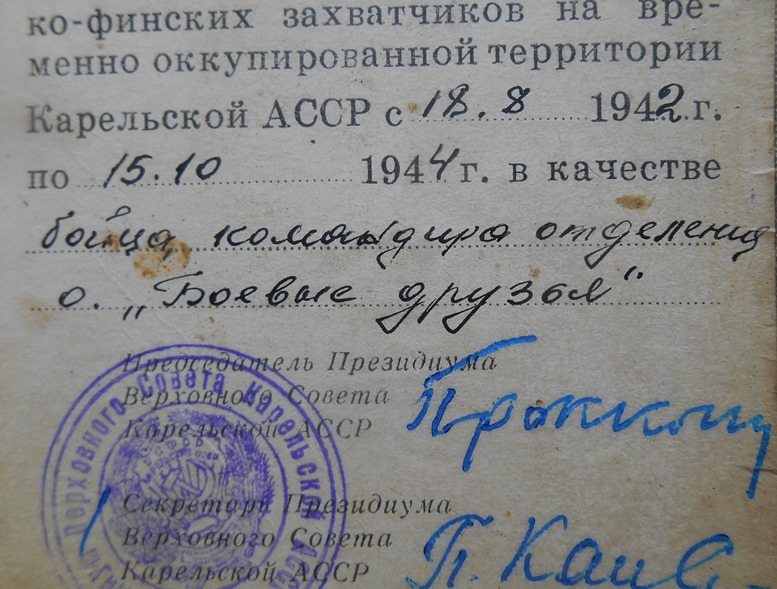 ко-финских захватчиков на вре-
менно оккупированной территории
Карельской АССР с 18.8 1942 г.
по 15.10 1944 г. в качестве
бойца, командира отделения
о. „Боевые друзья"
Председатель Президиума
Верховного Совета
Карельской АССР
Прокконен
Секретарь Президиума
Верховного Совета
Карельской АССР
Верховного Совета Карельской АССР